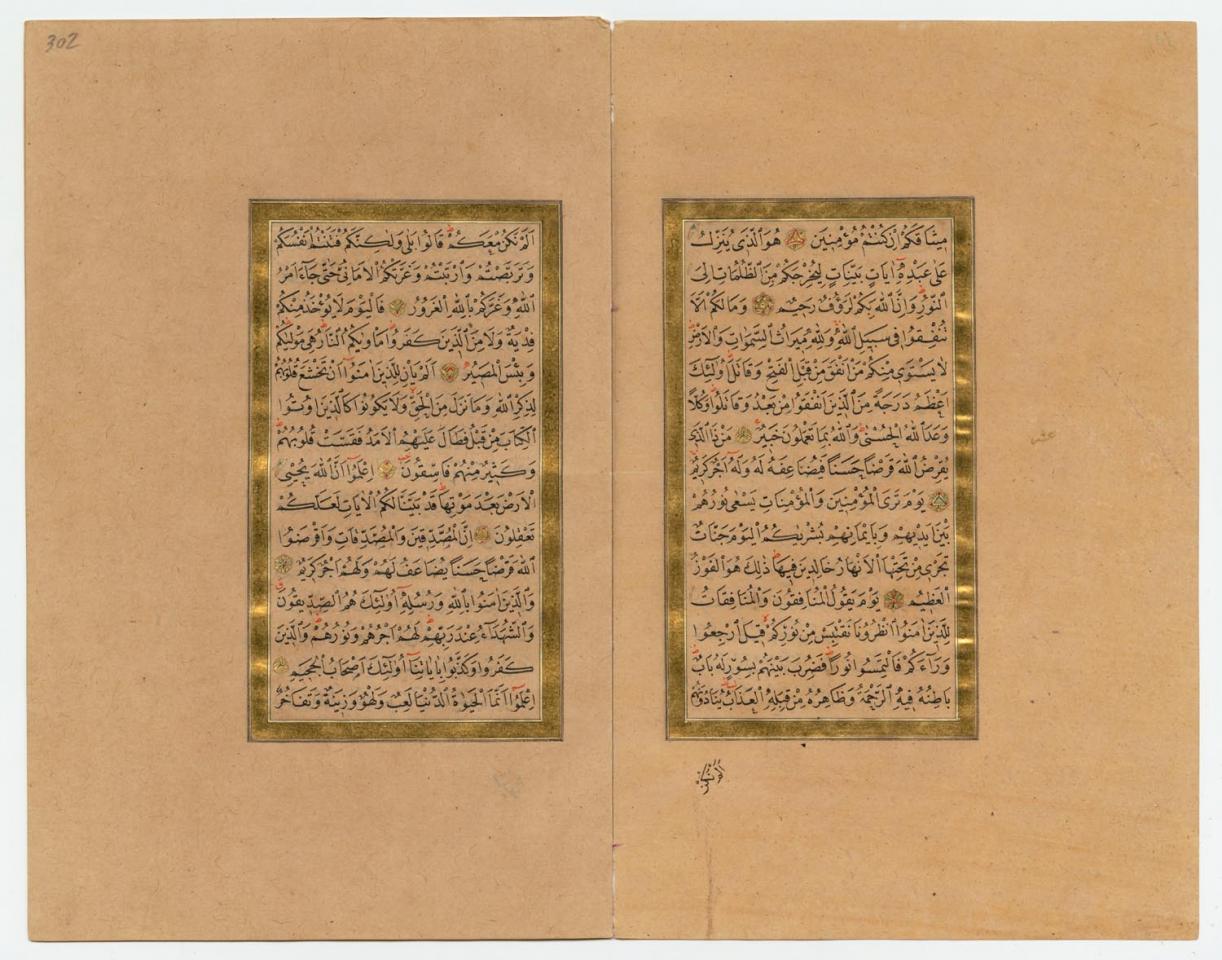 مِيثَاقَكُمْ اِنْ كُنْتُمْ مُؤْمِنِينَ هُوَ الَّذِى يُنَزِّلُ
عَلٰى عَبْدِهٖ اٰيَاتٍ بَيِّنَاتٍ لِيُخْرِجَكُمْ مِنَ الظُّلُمَاتِ اِلَى
النُّورِ وَاِنَّ اللهَ بِكُمْ لَرَؤُفٌ رَحِيمٌ وَمَا لَكُمْ اَلَّا
تُنْفِقُوا فِى سَبِيلِ اللهِ وَلِلّٰهِ مِيرَاثُ السَّمٰوَاتِ وَالْاَرْضِ
لَا يَسْتَوِى مِنْكُمْ مَنْ اَنْفَقَ مِنْ قَبْلِ الْفَتْحِ وَقَاتَلَ اُولٰئِكَ
اَعْظَمُ دَرَجَةً مِنَ الَّذِينَ اَنْفَقُوا مِنْ بَعْدُ وَقَاتَلُوا وَكُلًّا
وَعَدَ اللهُ الْحُسْنٰى وَاللهُ بِمَا تَعْمَلُونَ خَبِيرٌ مَنْ ذَا الَّذِى
يُقْرِضُ اللهَ قَرْضًا حَسَنًا فَيُضَاعِفَهُ لَهُ وَلَهُ اَجْرٌ كَرِيمٌ
يَوْمَ تَرَى الْمُؤْمِنِينَ وَالْمُؤْمِنَاتِ يَسْعٰى نُورُهُمْ
بَيْنَ اَيْدِيهِمْ وَبِاَيْمَانِهِمْ بُشْرٰيكُمُ الْيَوْمَ جَنَّاتٌ
تَجْرِى مِنْ تَحْتِهَا الْاَنْهَارُ خَالِدِينَ فِيهَا ذٰلِكَ هُوَ الْفَوْزُ
الْعَظِيمُ يَوْمَ يَقُولُ الْمُنَافِقُونَ وَالْمُنَافِقَاتُ
لِلَّذِينَ اٰمَنُوا انْظُرُونَا نَقْتَبِسْ مِنْ نُورِكُمْ قِيلَ ارْجِعُوا
وَرَاءَكُمْ فَالْتَمِسُوا نُورًا فَضُرِبَ بَيْنَهُمْ بِسُورٍ لَهُ بَابٌ
بَاطِنُهُ فِيهِ الرَّحْمَةُ وَظَاهِرُهُ مِنْ قِبَلِهِ الْعَذَابُ يُنَادُونَهُمْ
اَلَمْ نَكُنْ
302
اَلَمْ نَكُنْ مَعَكُمْ قَالُوا بَلٰى وَلٰكِنَّكُمْ فَتَنْتُمْ اَنْفُسَكُمْ
وَتَرَبَّصْتُمْ وَارْتَبْتُمْ وَغَرَّتْكُمُ الْاَمَانِىُّ حَتّٰى جَاءَ اَمْرُ
اللهِ وَغَرَّكُمْ بِاللهِ الْغَرُورُ فَالْيَوْمَ لَا يُؤْخَذُ مِنْكُمْ
فِدْيَةٌ وَلَا مِنَ الَّذِينَ كَفَرُوا مَاْوٰيكُمُ النَّارُ هِىَ مَوْلٰيكُمْ
وَبِئْسَ الْمَصِيرُ اَلَمْ يَاْنِ لِلَّذِينَ اٰمَنُوا اَنْ تَخْشَعَ قُلُوبُهُمْ
لِذِكْرِ اللهِ وَمَا نَزَلَ مِنَ الْحَقِّ وَلَا يَكُونُوا كَالَّذِينَ اُوتُوا
الْكِتَابَ مِنْ قَبْلُ فَطَالَ عَلَيْهِمُ الْاَمَدُ فَقَسَتْ قُلُوبُهُمْ
وَكَثِيرٌ مِنْهُمْ فَاسِقُونَ اِعْلَمُوا اَنَّ اللهَ يُحْيِى
الْاَرْضَ بَعْدَ مَوْتِهَا قَدْ بَيَّنَّا لَكُمُ الْاٰيَاتِ لَعَلَّكُمْ
تَعْقِلُونَ اِنَّ الْمُصَّدِّقِينَ وَالْمُصَّدِّقَاتِ وَاَقْرَضُوا
اللهَ قَرْضًا حَسَنًا يُضَاعَفُ لَهُمْ وَلَهُمْ اَجْرٌ كَرِيمٌ
وَالَّذِينَ اٰمَنُوا بِاللهِ وَرُسُلِهِ اُولٰئِكَ هُمُ الصِّدِّيقُونَ
وَالشُّهَدَاءُ عِنْدَ رَبِّهِمْ لَهُمْ اَجْرُهُمْ وَنُورُهُمْ وَالَّذِينَ
كَفَرُوا وَكَذَّبُوا بِاٰيَاتِنَا اُولٰئِكَ اَصْحَابُ الْجَحِيمِ
اِعْلَمُوا اَنَّمَا الْحَيٰوةُ الدُّنْيَا لَعِبٌ وَلَهْوٌ وَزِينَةٌ وَتَفَاخُرٌ